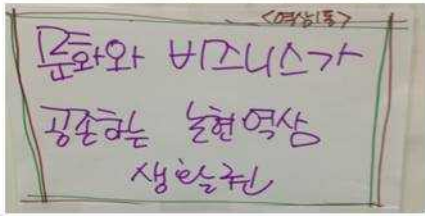 <역삼1동>
문화와 비즈니스가
공존하는 논현역삼
생활권